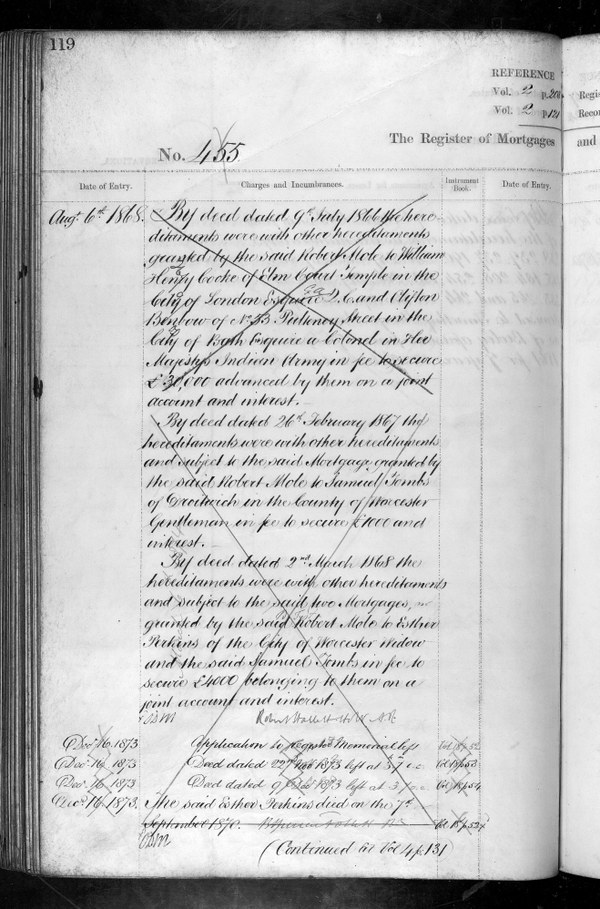 119
REFERENCE
Vol. 2 p. 200
Vol. 2 p. 121
Regis
Recor
No. 455
The Register of Mortgages
and
Date of Entry.
Charges and Incumbrances.
Instrument Book.
Date of Entry.
Augt. 6th 1868.
By deed dated 9th July 1866 the here
ditaments were with other hereditaments
granted by the said Robert Mole to William
Henry Cocke of Elm Court Temple in the
City of London Esquire Q.C. and Clifton
Benbow of No. 53 Pulteney Street in the
City of Bath Esquire a Colonel in Her
Majestys Indian Army in fee to secure
£30,000 advanced by them on a joint
account and interest.
By deed dated 26th February 1867 the
hereditaments were with other hereditaments
and subject to the said Mortgage granted by
the said Robert Mole to Samuel Tombs
of Droitwich in the County of Worcester
Gentleman in fee to secure £1000 and
interest.
By deed dated 2nd March 1868 the
hereditaments were with other hereditaments
and subject to the said two Mortgages,
granted by the said Robert Mole to Esther
Perkins of the City of Worcester Widow
and the said Samuel Tombs in fee to
secure £4000 belonging to them on a
joint account and interest.
Robert Hallett Holt A.R.
Decr. 16. 1873 Application to register Memorial left Vol 18 p 52
Decr. 16. 1873 Deed dated 22nd 1873 left at 3.7 o.c. Vol 18 p 53
Decr. 16. 1873 Deed dated 9 1873 left at 3.7 o.c. Vol 18 p 54
Decr. 16. 1873. The said Esther Perkins died on the 7th
September 1870.
(Continued at Vol 4 p. 131